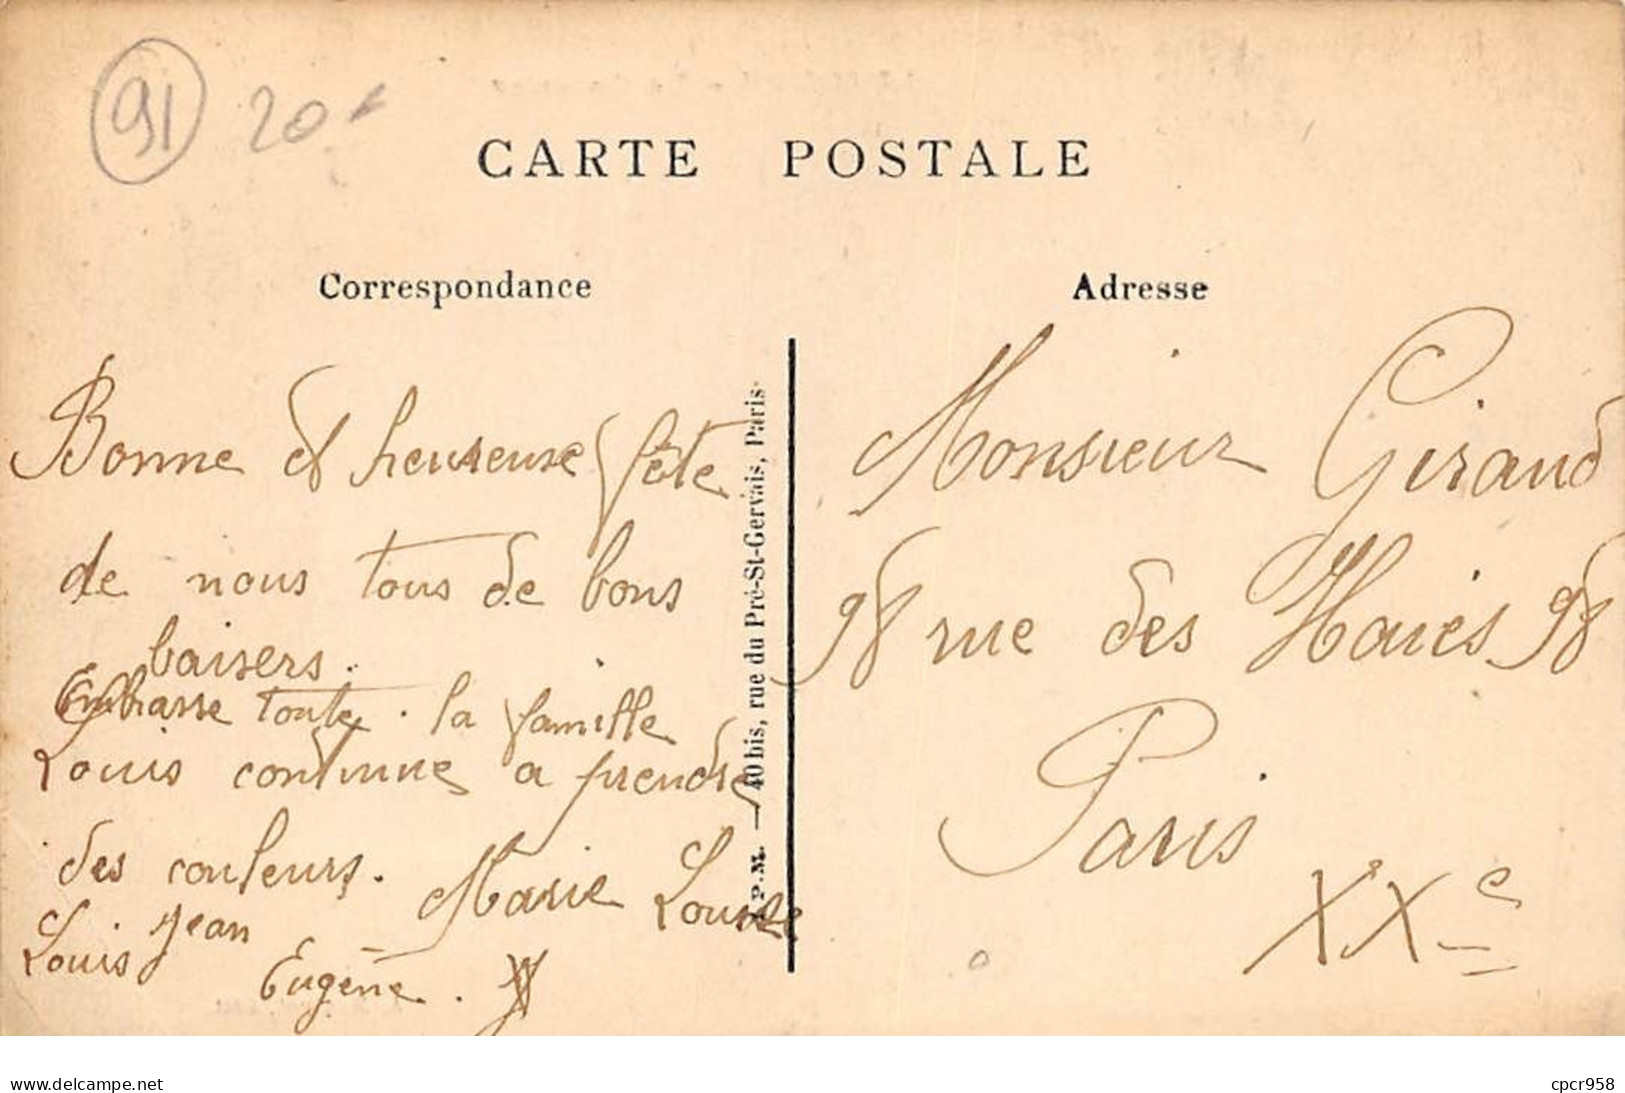 91 20
CARTE POSTALE
Correspondance
Adresse
Bonne et heureuse fête
de nous tous de bons
baisers.
Embrasse toute la famille
Louis continue a prendre
des couleurs. Marie Louise
Louis Jean
Eugène.
P.M. — 40 bis, rue du Pré-St-Gervais, Paris
Monsieur Giraud
98 rue des Haies 98
Paris
XXe
delcampe.net
cpcr958